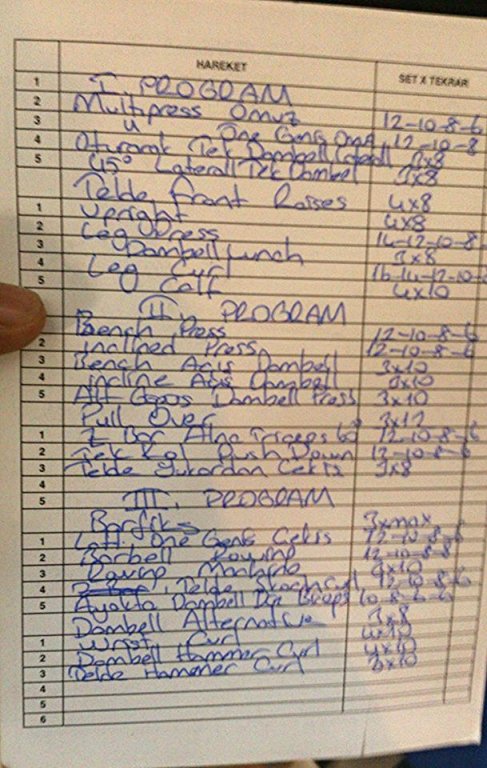 HAREKET SET X TEKRAR
I. PROGRAM
Multipress Omuz 12-10-8-6
" Öne Geniş Omuz 12-10-8
Oturarak Tek Dambell Laterall 3x8
45° Laterall Tek Dambel 3x8
Telde Front Rasses 4x8
Upright 4x8
Leg Press 14-12-10-8
Dambell Lunch 3x8
Leg Curl 16-14-12-10
" Calf 4x10
II. PROGRAM
Bench Press 12-10-8-6
inclined Press 12-10-8-6
Bench Açış Dambell 3x10
incline Açış Dambell 3x10
Alt Göğüs Dambell Press 3x10
Pull Over 3x12
Z Bar Alna Triceps 12-10-8-6
Tek Kol Push Down 12-10-8-6
Telde Yukardan Çekiş 3x8
III. PROGRAM
Barfiks 3xmax
Latt. Öne Geniş Çekiş 12-10-8-6
Barbell Rowing 12-10-8-8
Rowing Makarada 4x10
Telde Curl 12-10-8-6
Ayakta Dambell Biceps 10-8-6-6
Dambell Alternative 3x8
Wrist Curl 4x10
Dambell Hammer Curl 4x10
Telde Hammer Curl 3x10